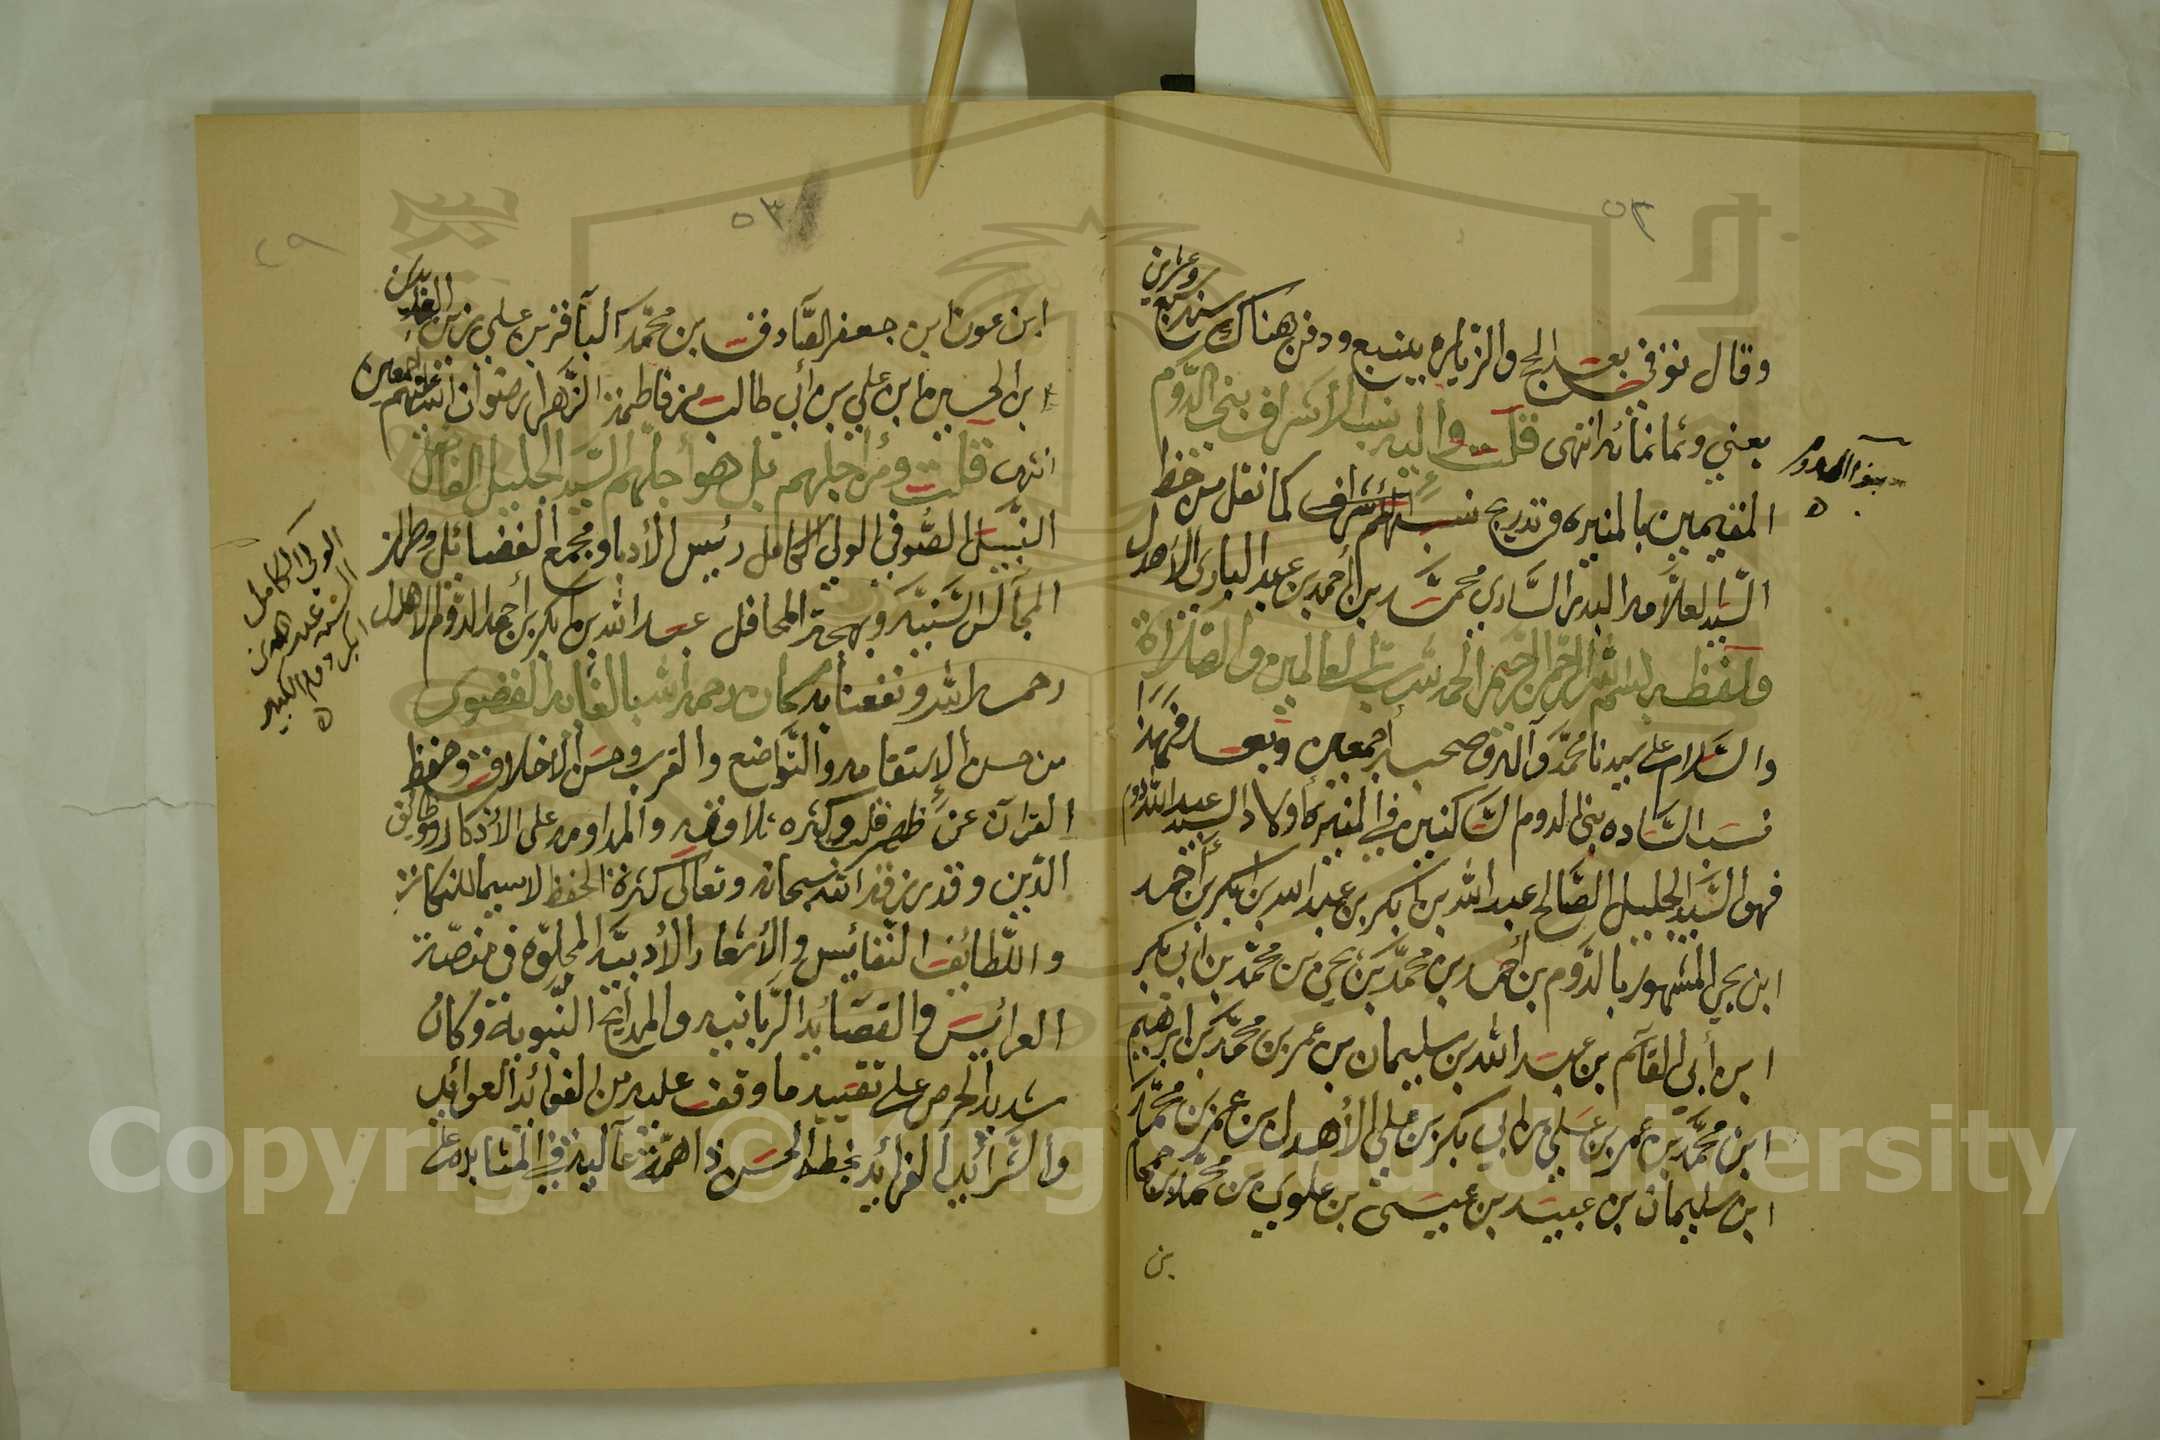 ٥٢
وقال توفي بعد الحج والزياره بينبع ودفن هناك سنة سبع وعشرين
يعني وثمانمائه انتهى قلت واليه نسب الأشراف بني الدوم
المقيمين بالمنيره وتدريج نسبهم كما نقل من خط
السيد العلامه البدر الساري محمد بن أحمد بن عبد الباري الأهدل
ولفظه بسم الله الرحمن الرحيم الحمد لله رب العالمين والصلاة
والسلام على سيدنا محمد وآله وصحبه أجمعين وبعد فهذا
نسب الساده بني الدوم الساكنين في المنيره أولاد السيد عبد الله دوم
فهو السيد الجليل الصالح عبد الله بن ابكر بن عبد الله بن ابكر بن أحمد
ابن يحيى المشهور بالدوم بن أحمد بن محمد بن يحيى بن محمد بن ابي بكر
ابن أبي القاسم بن عبد الله بن سليمان بن عمر بن محمد بن ابرهيم
ابن محمد بن عمر بن علي بن ابي بكر بن علي الأهدل بن عمر بن محمد
ابن سليمان بن عبيد بن عيسى بن علوي بن محمد بن حمحام
بن
بنو الدوم
٥٣
٢٩
ابن عون ابن جعفر الصادق بن محمد الباقر بن علي زين العابدين
ابن الحسين ابن علي بن أبي طالب من فاطمة الزهرا رضوان الله عليهم أجمعين
انتهى قلت ومن أجلهم بل هو أجلهم السيد الجليل الفاضل
النبيل الصوفي الولي الكامل رئيس الأدبا ومجمع الفضائل وطراز
المجالس السنيه وبهجة المحافل عبد الله بن ابكر بن أحمد الدوم الاهدل
رحمه الله ونفعنا به كان رحمه الله بالغاية القصوى
من حسن الإستقامه والتواضع والقرب وحسن الاخلاق وحفظ
القرآن عن ظهر قلب وكثره تلاوته والمداومه على الأذكار ووظائف
الدين وقد رزقه الله سبحانه وتعالى كثرة الحفظ لاسيما للنكات
واللطائف النفائس والأشعار الأدبيه المجلوه في منصة
العرائس والقصائد الربانيه والمدايح النبوية وكان
شديد الحرص على تقييد ما وقف عليه من الفوائد العوائد
والشرائد الفرائد بخطه الحسن ذا همة عاليه في المثابره على
الولي الكامل
السيد عبد الله بن
ابكر دوم الكبير
Copyright © King Saud University